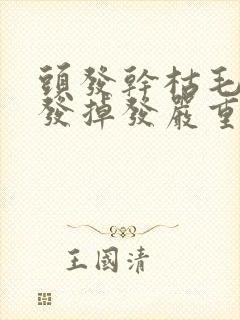 頭發幹枯毛
發掉發嚴重
王國清